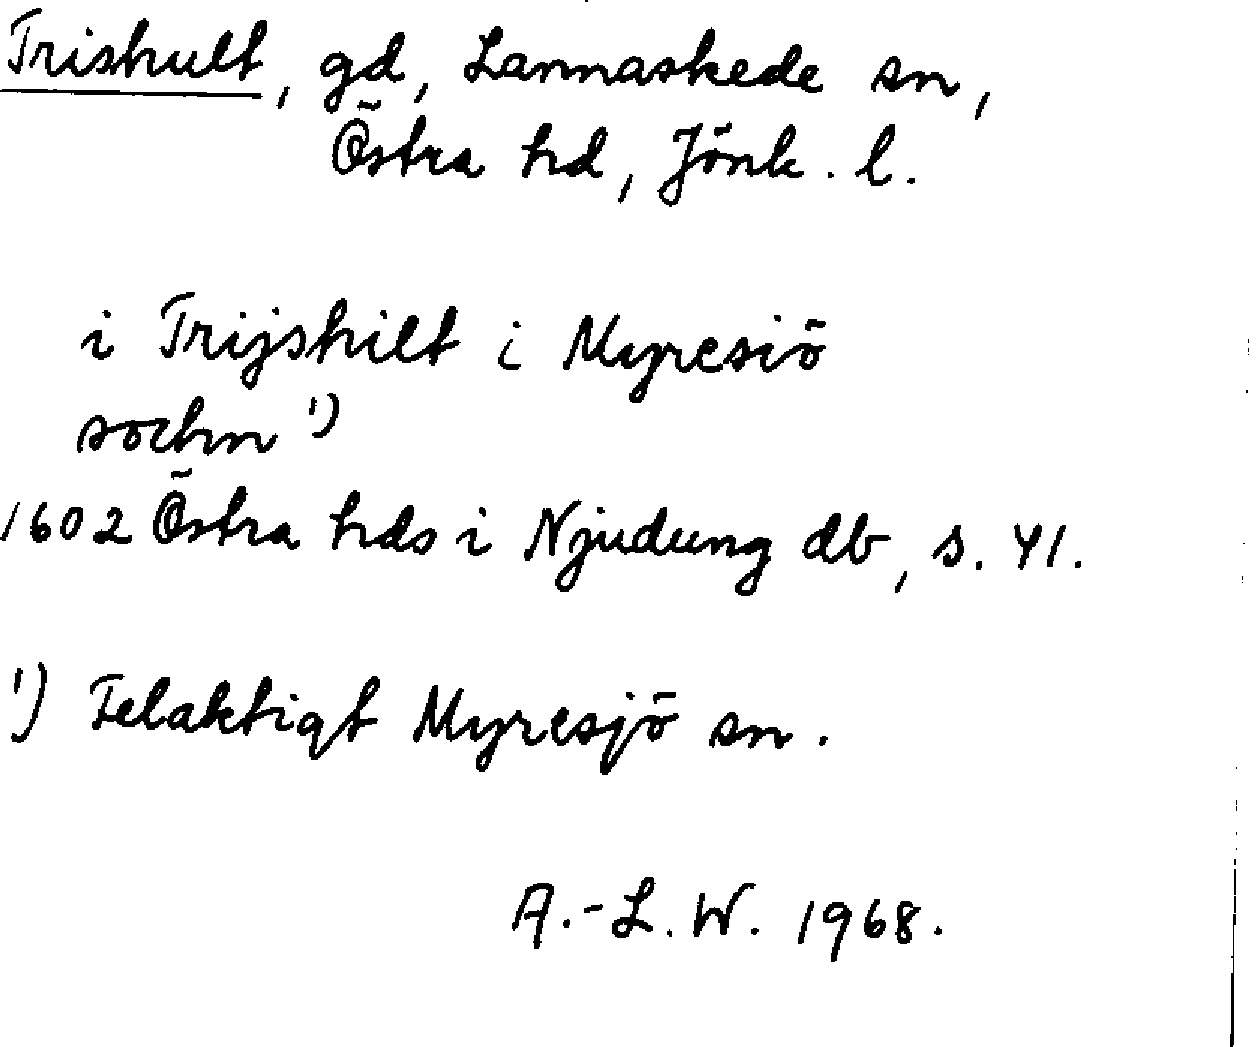 Trishult, gd, Lannaskede sn,
Östra hd, Jönk. l.
i Trijshilt i Myresiö
sochn ¹)
1602 Östra hds i Njudung db, s. 41.
¹) Felaktigt Myresjö sn.
A.-L. W. 1968.